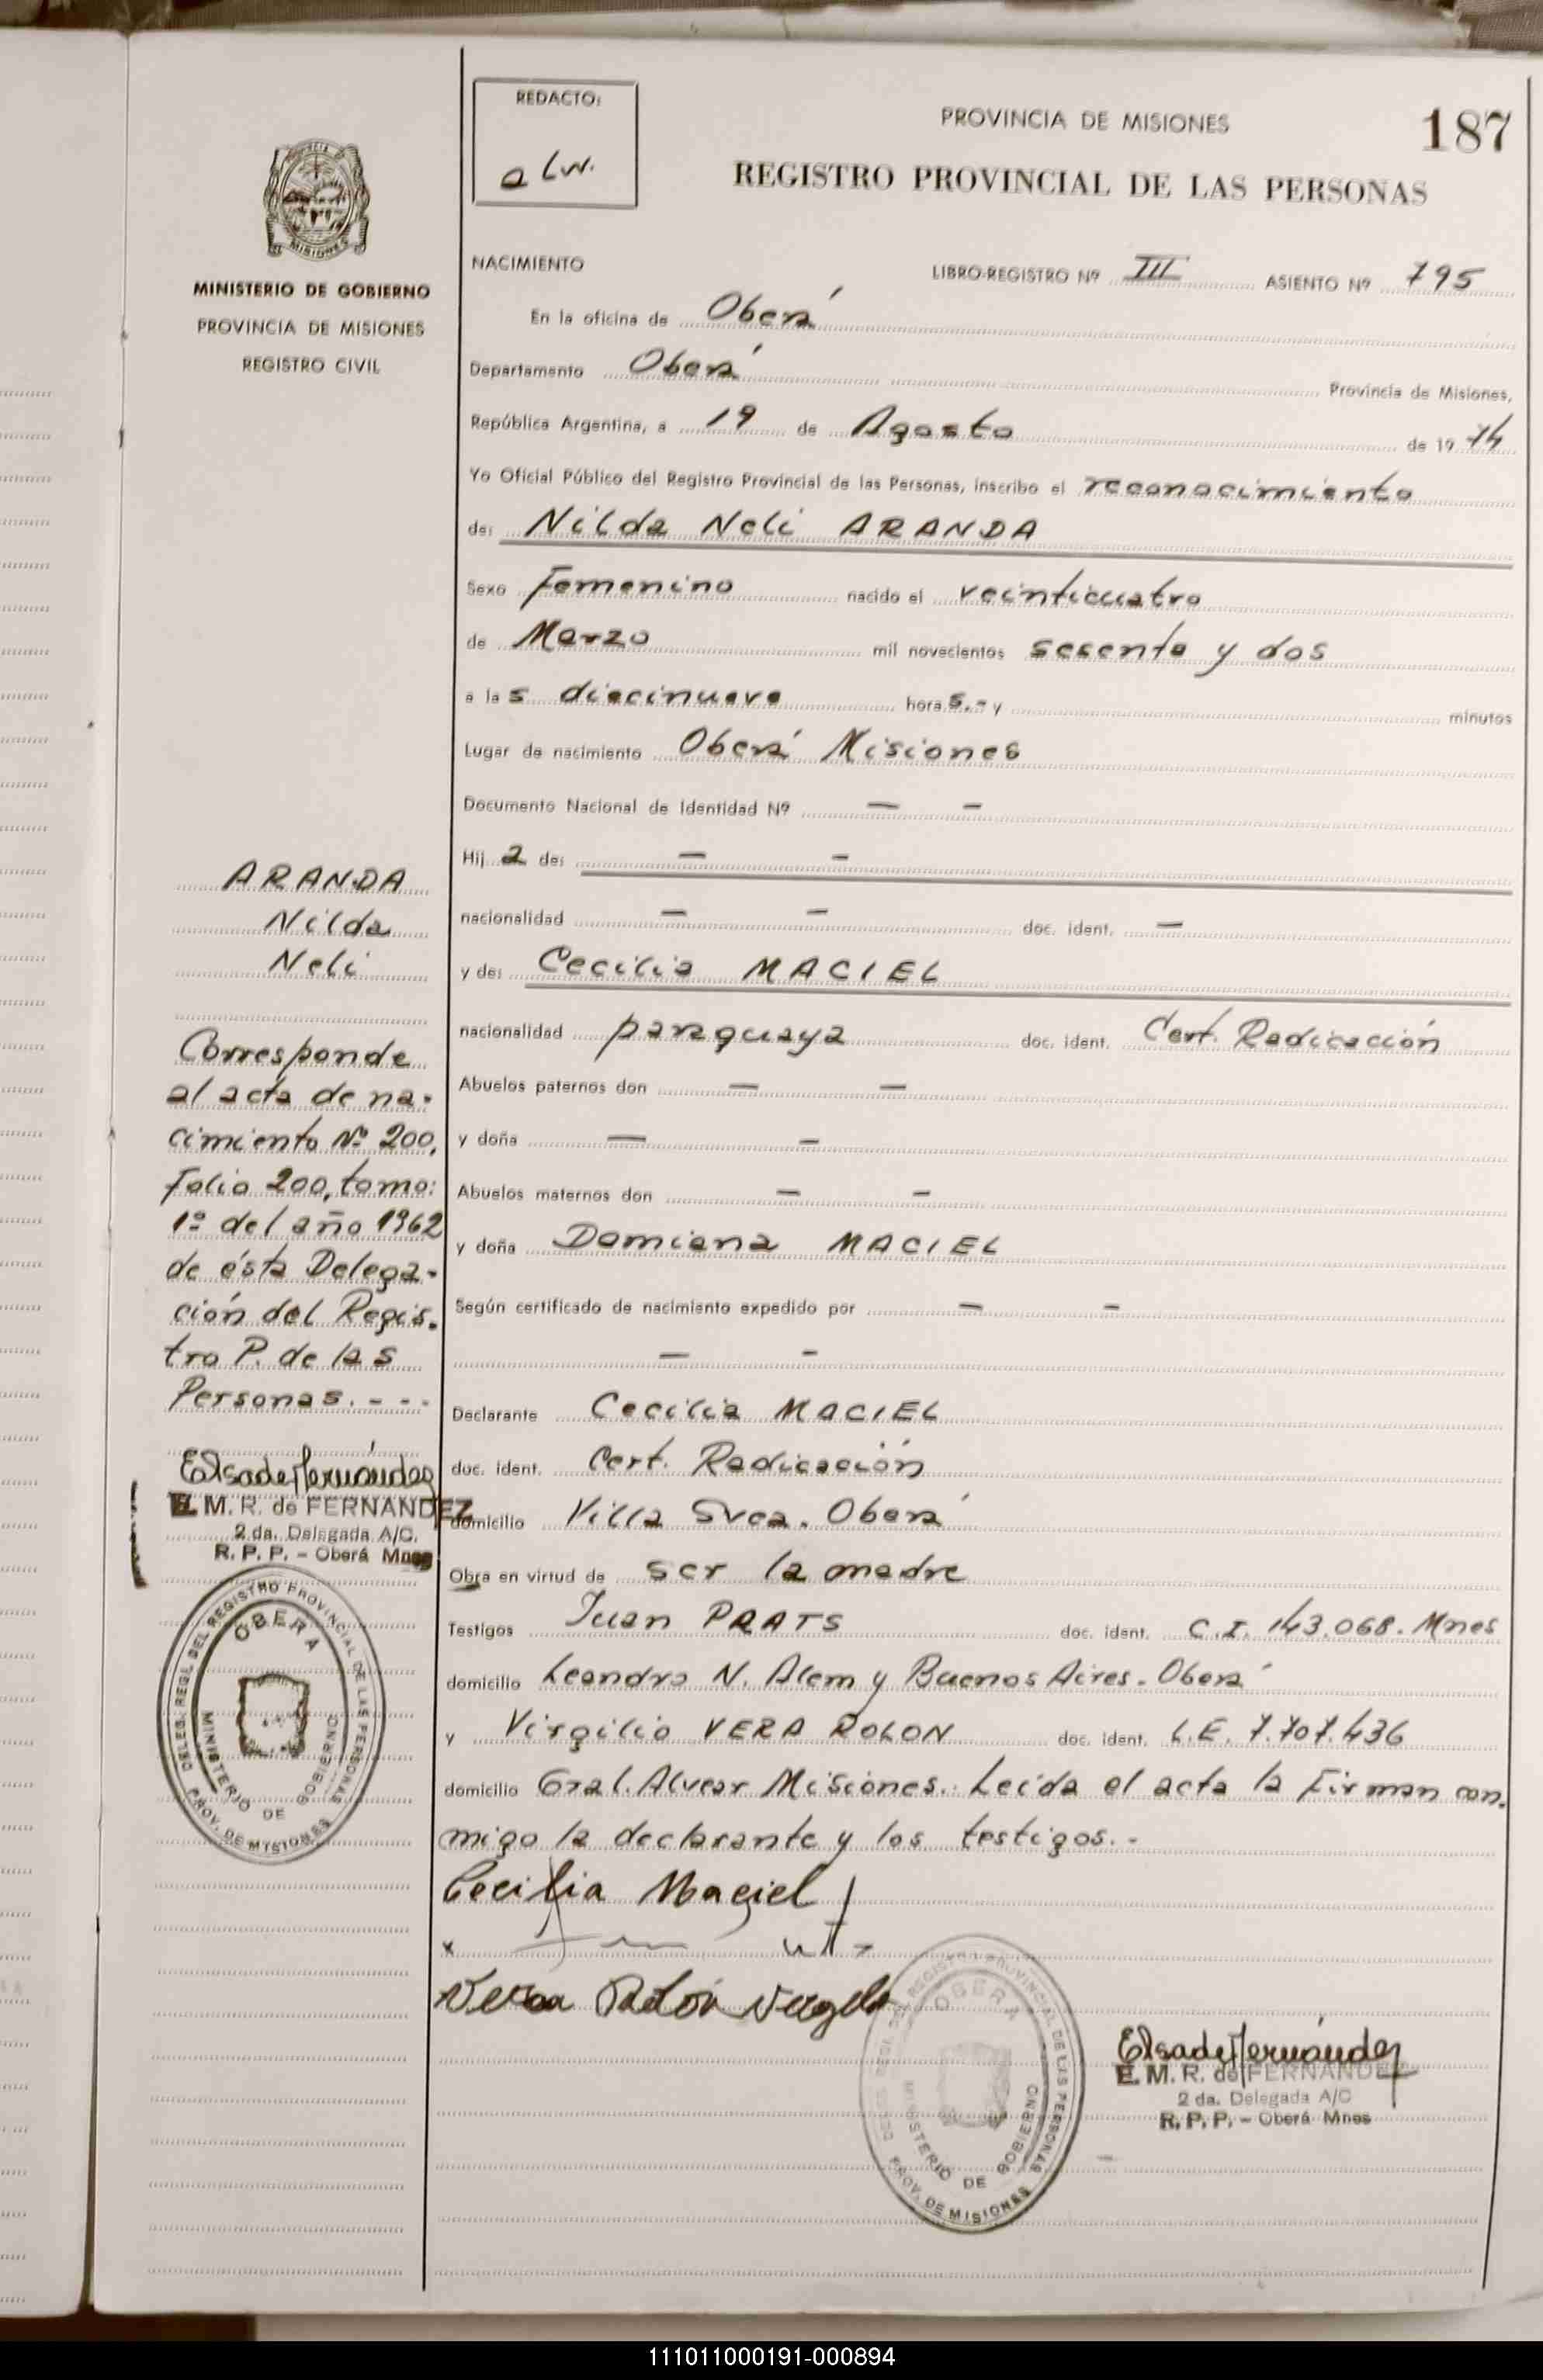 REDACTO:
a Lw.
PROVINCIA DE MISIONES
187
REGISTRO PROVINCIAL DE LAS PERSONAS
MISIONES
MINISTERIO DE GOBIERNO
PROVINCIA DE MISIONES
REGISTRO CIVIL
NACIMIENTO LIBRO-REGISTRO Nº III ASIENTO Nº 795
En la oficina de Oberá
Departamento Oberá Provincia de Misiones,
República Argentina, a 19 de Agosto de 19 74
Yo Oficial Público del Registro Provincial de las Personas, inscribo el reconocimiento
de: Nilda Neli ARANDA
Sexo Femenino nacido el veinticuatro
de Marzo mil novecientos sesenta y dos
a las diecinueve horas.- y minutos
Lugar de nacimiento Oberá Misiones
Documento Nacional de Identidad Nº — -
Hij a de: — -
nacionalidad — - doc. ident. —
y de: Cecilia MACIEL
nacionalidad paraguaya doc. ident. Cert. Radicación
Abuelos paternos don — —
y doña — -
Abuelos maternos don — -
y doña Damiana MACIEL
Según certificado de nacimiento expedido por — -
— -
Declarante Cecilia MACIEL
doc. ident. Cert. Radicación
domicilio Villa Svea. Oberá
Obra en virtud de ser la madre
Testigos Juan PRATS doc. ident. C.I. 143.068. Mnes
domicilio Leandro N. Alem y Buenos Aires. Oberá
y Virgilio VERA ROLON doc. ident. L.E. 7.707.436
domicilio Gral. Alvear Misiones. Leída el acta la Firman con.
migo la declarante y los testigos.-
Cecilia Maciel
x
Vera Rolón Virgilio
ARANDA
Nilda
Neli
Corresponde
al acta de na-
cimiento Nº 200,
Folio 200, tomo:
1º del año 1962
de ésta Delega-
ción del Regis-
tro P. de las
Personas. - - -
Elsa de Fernández
E. M. R. de FERNANDEZ
2 da. Delegada A/C.
R. P. P. - Oberá Mnes
DELEG. REGL. DEL REGISTRO PROVINCIAL DE LAS PERSONAS
OBERA
MINISTERIO DE GOBIERNO
PROV. DE MISIONES
REGISTRO PROVINCIAL DE LAS PERSONAS
OBERA
MINISTERIO DE GOBIERNO
PROV. DE MISIONES
Elsa de Fernández
E. M. R. de FERNANDEZ
2 da. Delegada A/C
R. P. P. - Oberá Mnes
111011000191-000894